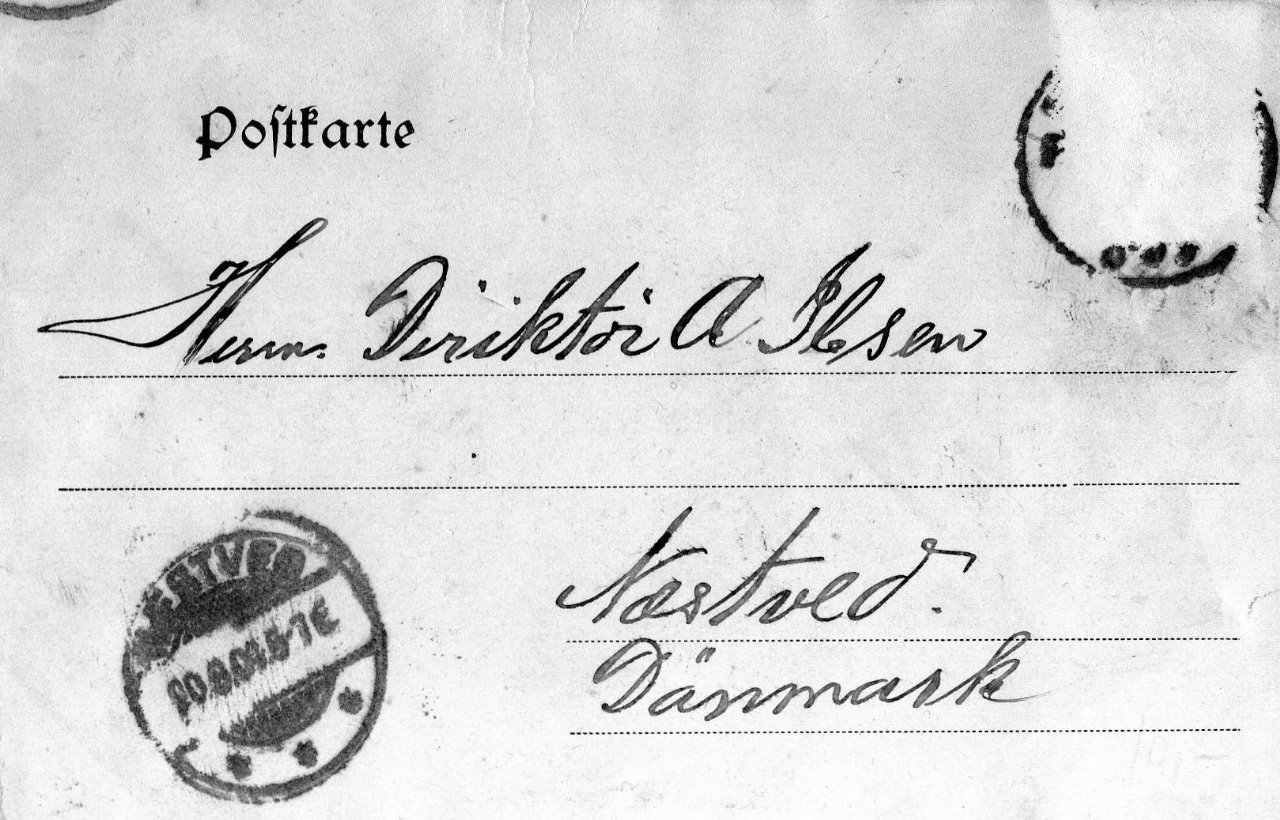 Postkarte
Herrn Direktör A Ibsen
Næstved.
Dänmark
NÆSTVED
5-7E